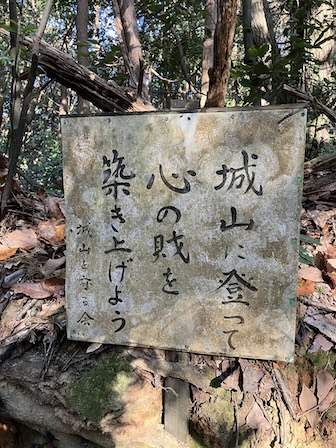 城山に登って
心の賊を
築き上げよう
城山を守る会